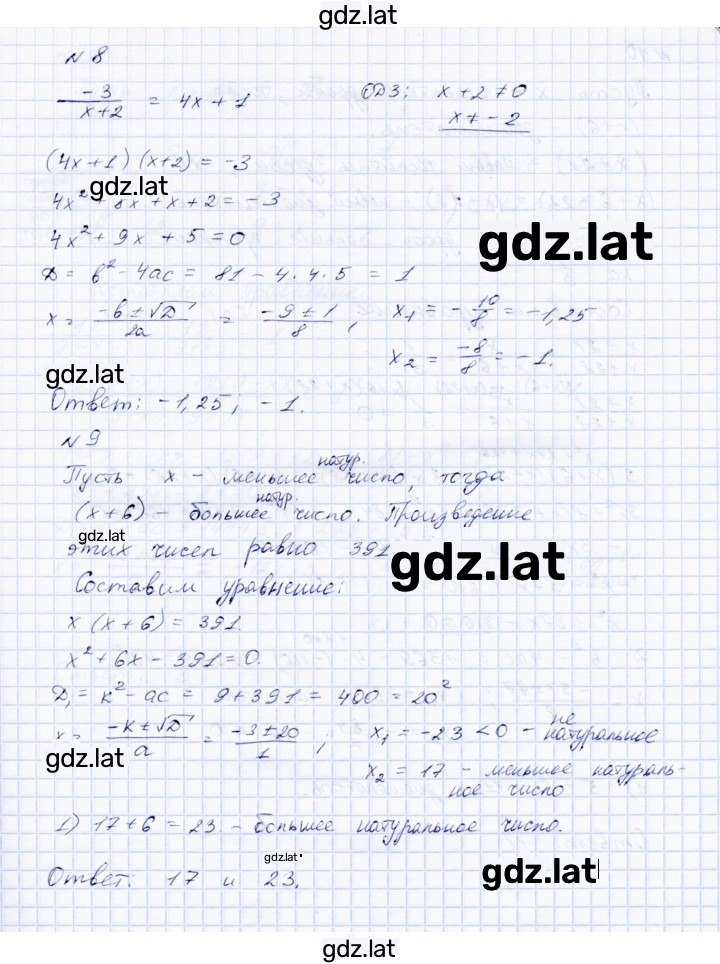 gdz.lat
N 8
-3/(x+2) = 4x+1   ОДЗ: x+2≠0
x≠-2
(4x+1)(x+2) = -3
gdz.lat
4x²+8x+x+2=-3
4x²+9x+5=0
gdz.lat
D = b²-4ac = 81-4·4·5 = 1
x = (-b±√D)/2a = (-9±1)/8, x₁ = -10/8 = -1,25
x₂ = -8/8 = -1.
gdz.lat
Ответ: -1,25; -1.
N 9
Пусть x - меньшее натур. число, тогда
(x+6) - большее натур. число. Произведение
gdz.lat
этих чисел равно 391
gdz.lat
Составим уравнение:
x(x+6) = 391.
x²+6x-391=0.
D₁ = k²-ac = 9+391 = 400 = 20²
x = (-k±√D)/a = (-3±20)/1, x₁ = -23 <0 - не натуральное
gdz.lat
x₂ = 17 - меньшее натураль-
ное число
1) 17+6 = 23 - большее натуральное число.
gdz.lat
Ответ: 17 и 23.
gdz.lat
gdz.lat